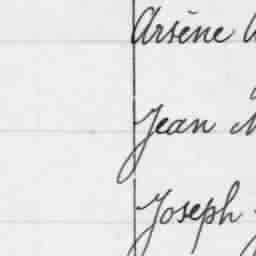 Arsène
Jean
Joseph